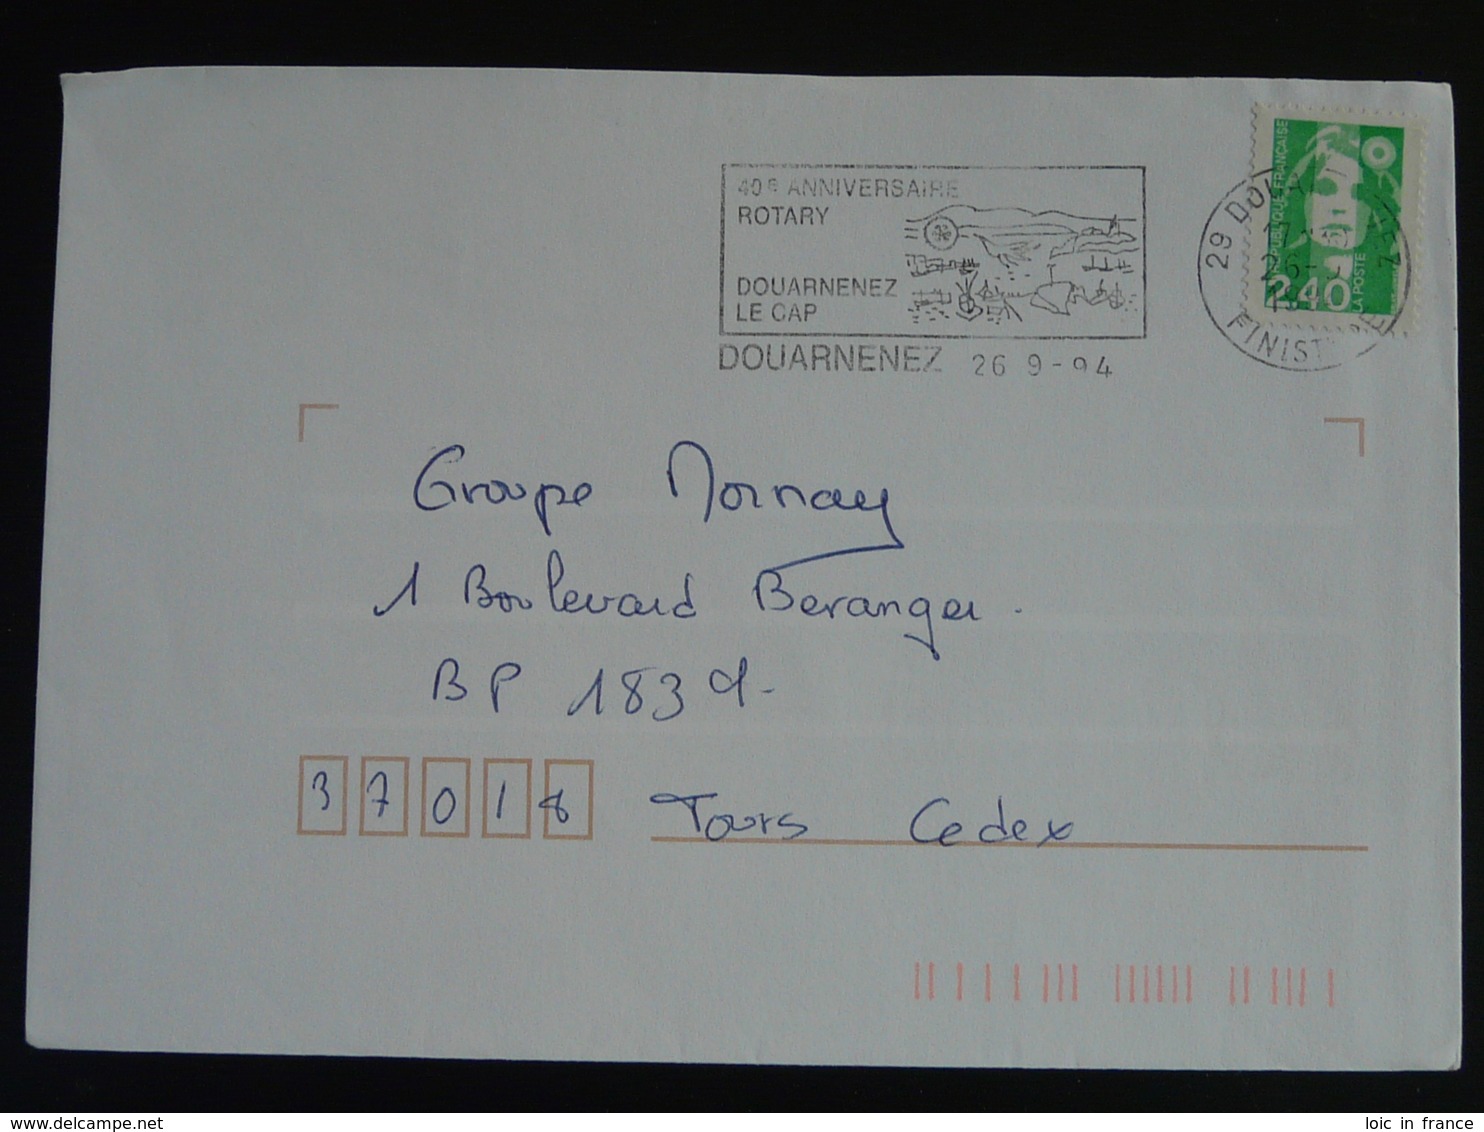 40e ANNIVERSAIRE
ROTARY
DOUARNENEZ
LE CAP
DOUARNENEZ 26 9-94
RÉPUBLIQUE FRANÇAISE
2,40
LA POSTE
29
FINIST
Groupe Mornay
1 Boulevard Beranger.
BP 1839-
37018 Tours Cedex
delcampe.net
loic in france